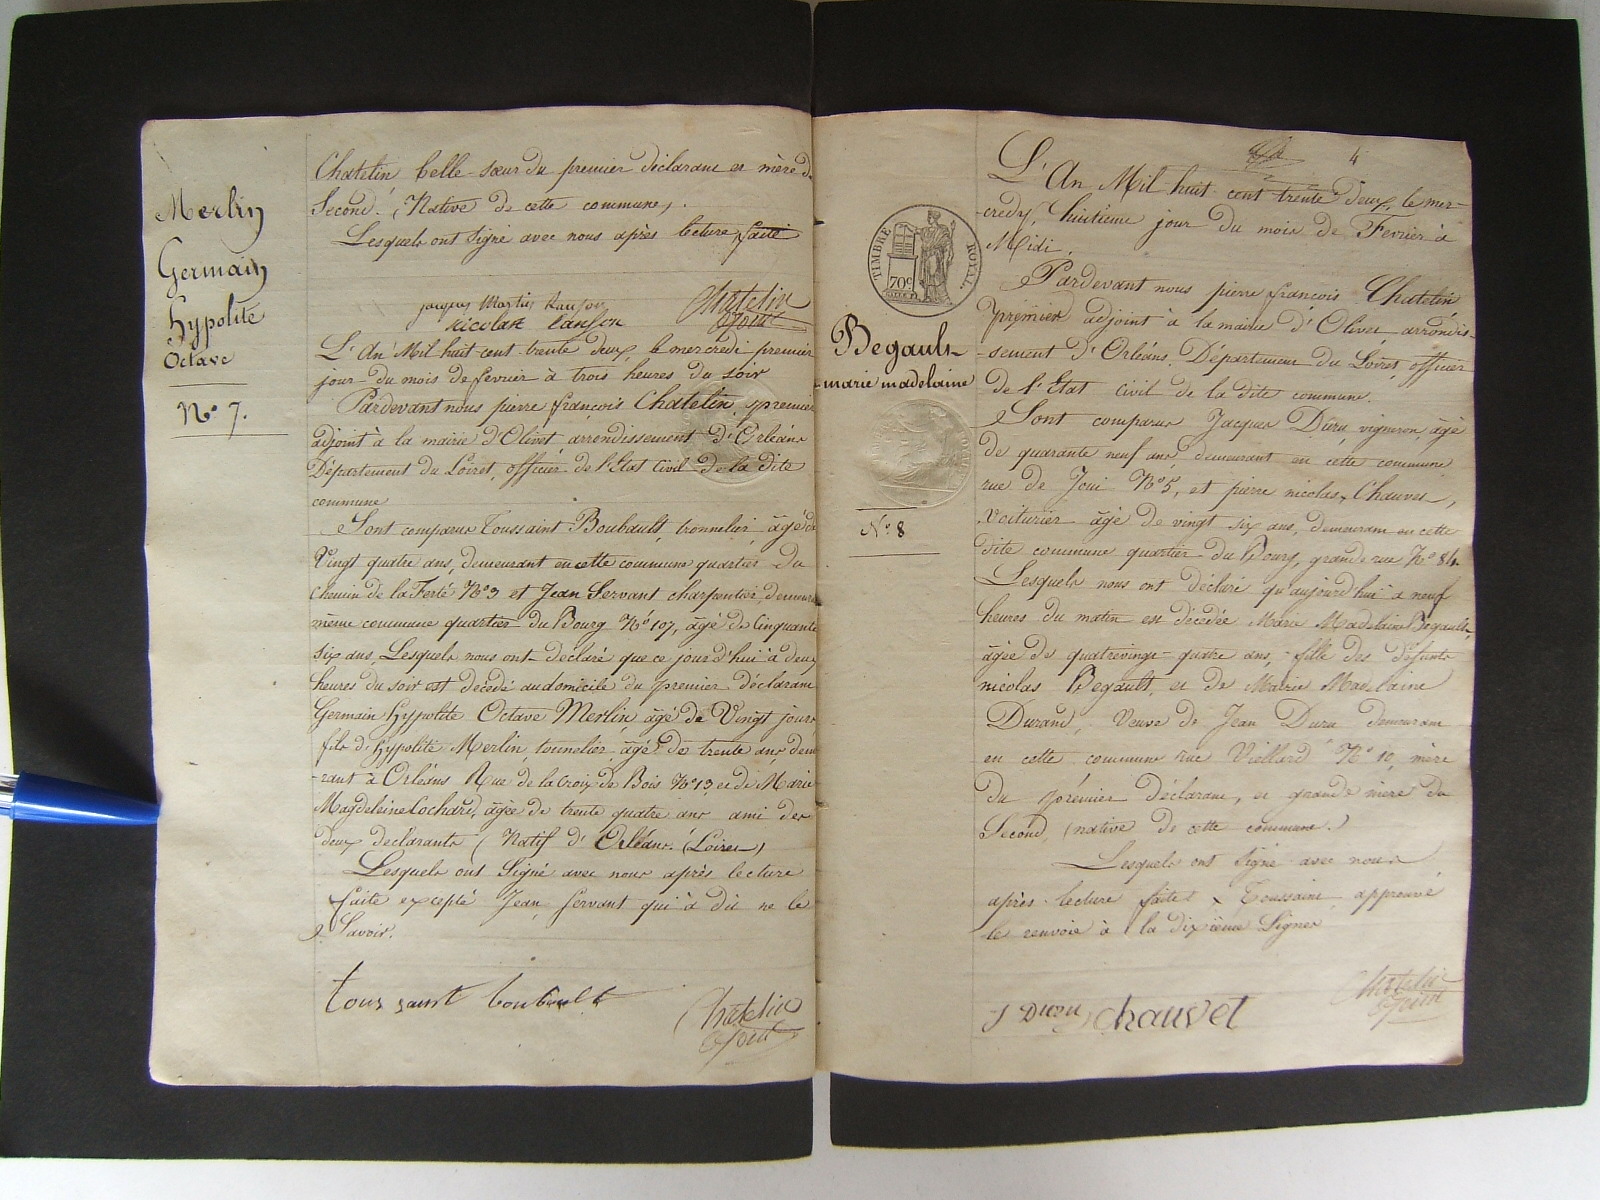 Merlin
Germain
hypolite
Octave
N° 7.
Chatelin belle-sœur du premier déclarant et mère d
Second. (Native de cette commune).
Lesquels ont Signé avec nous après lecture faite
jacques Martin Ranson
nicolase Ranson
Chatelin
adjoint
L'An Mil huit cent trente deux, le mercredi premier
jour du mois de fevrier à trois heures du soir
Pardevant nous pierre françois Chatelin, premier
adjoint à la mairie d'Olivet arrondissement d'Orléans
Département du Loiret, officier de l'Etat Civil de la dite
commune
Sont comparus Toussaint Boubault, tonnelier, âgé de
Vingt quatre ans, demeurant en cette commune quartier du
chemin de la Ferté N° 3 et Jean Servant charpentier, demeura
même commune quartier du Bourg N° 107, âgé de Cinquante
Six ans, Lesquels nous ont déclaré que ce jour d'hui à deux
heures du soir est decedé au domicile du premier déclarant
Germain hypolite Octave Merlin, âgé de Vingt jours
fils d'hypolite Merlin, tonnelier, âgé de trente ans dem
-rant à Orléans Rue de la Croix de Bois N° 13 et de Marie
Magdeleine Cochard, âgée de trente quatre ans ami des
deux declarants (Natif d'Orléans. (Loiret)
Lesquels ont Signé avec nous après lecture
faite excepté Jean Servant qui à dit ne le
Savoir.
tous saint boubault
Chatelin
adjoint
4
TIMBRE ROYAL
70c
Begault
marie madelaine
N° 8
L'An Mil huit cent trente deux, le mer-
-credy, huitième jour du mois de Fevrier à
Midi.
Pardevant nous pierre françois Chatelin
premier adjoint à la mairie d'Olivet arrondis-
-sement d'Orléans. Département du Loiret, officier
de l'Etat civil de la dite commune.
Sont comparus Jacques Duru, vigneron, âgé
de quarante neuf ans, demeurant en cette commune
rue de Joui N° 5, et pierre nicolas x Chauvet,
Voiturier âgé de vingt six ans, demeurant en cette
dite commune quartier du Bourg, grande rue N° 84.
Lesquels nous ont déclaré qu'aujourd'hui à neuf
heures du matin est décédée Marie Madelaine Begault,
âgée de quatrevingt-quatre ans, fille des défunts
nicolas Begault, et de Marie Madelaine
Durand, Veuve de Jean Duru demeurant
en cette commune rue Viellard N° 10, mère
du premier déclarant, et grande mère du
Second, (native de cette commune.)
Lesquels ont Signé avec nous
après lecture faite x Toussaint approuvé
le renvoie à la dixieme Ligne
J Duru
Chauvet
Chatelin
adjoint